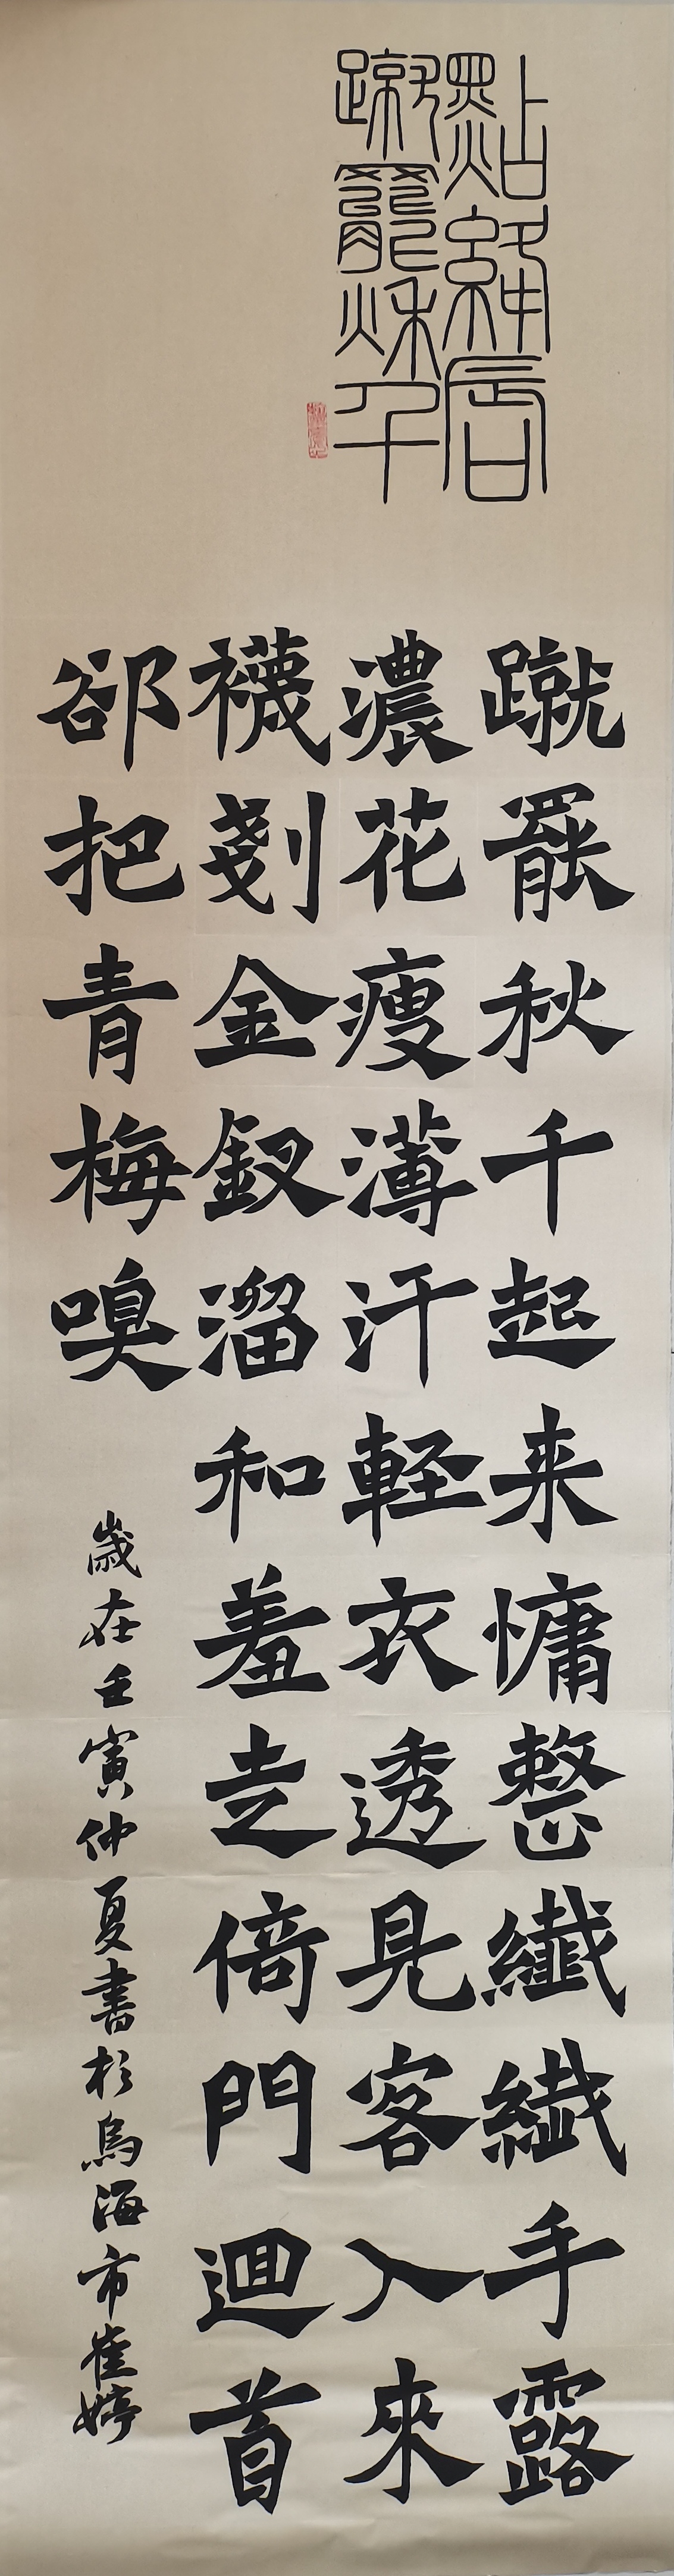 點絳唇
蹴罷秋千
蹴罷秋千起来慵整纖纖手露
濃花瘦薄汗軽衣透見客入來
襪剗金釵溜和羞走倚門迴首
卻把青梅嗅
歲在壬寅仲夏書於烏海市崔婷